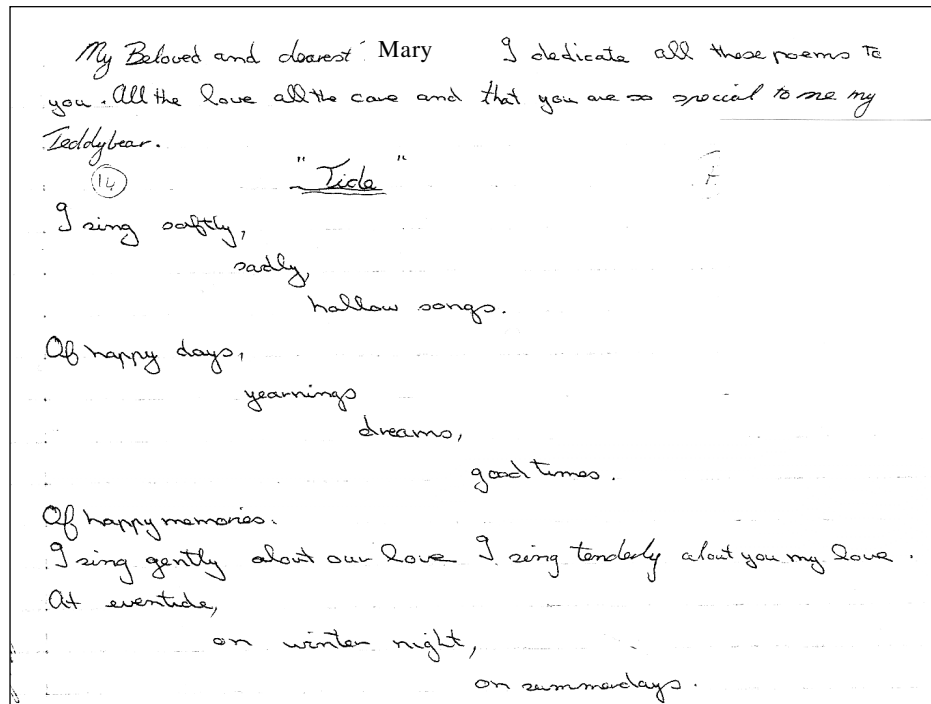 My Beloved and dearest Mary I dedicate all these poems to
you. All the love all the care and that you are so special to me my
Teddybear.
14 "Tide"
I sing softly,
sadly,
hallow songs.
Of happy days,
yearnings
dreams,
good times.
Of happy memories.
I sing gently about our love I sing tenderly about you my love.
At eventide,
on winter night,
on summerdays.